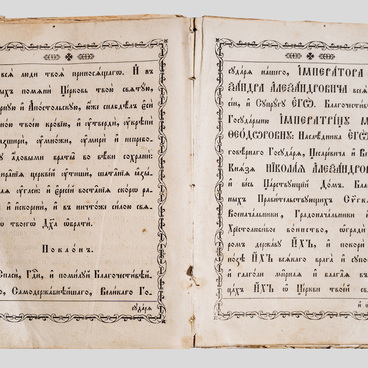 всѧ люди твоѧ приносѧщаго. И въ
ыхъ помѧни Церковь твою свѧтую,
рную и Апостольскую, юже снабдѣ єси
ною твоею кровїю, и ѹтверди, ѹкрѣпи
азшири, ѹмножи, ѹмири и непребо-
у адовыми враты во вѣки сохрани:
ирания церквей ѹтиши, шатанїѧ ѩзы-
аѧ ѹгаси: и єресей востанїѧ скоро ра-
и и искорени, и въ ничтоже силою свѧ-
ѡ твоегѡ Дх҃а ѡбрати.
Поклонъ.
Спаси, Гд҇и, и помилуй Благочестивѣй-
о, Самодержавнѣйшаго, Великаго Го-
сударѧ
сударѧ нашего, ІМПЕРАТОРА
ѮАНДРА АЛЕѮАНДРОВИЧА всеѧ
сїи, и Супругу ЕГѠ, Благочести
Государыню ІМПЕРАТРИЦУ М
ѲЕОДѠРОВНУ: Наслѣдника ЕГѠ
говѣрнаго Государѧ, Цесаревича и Ве
Князѧ НИКОЛАѦ АЛЕѮАНДРОВ
и весь Царствующїй Домъ. Благо
ныхъ Правительствующихъ Сѵгк
Военачальники, Градоначальники и
Христолюбивое воинство, ѡгради
ромъ державу ИХЪ, и покори п
нозѣ ИХЪ всѧкаго врага и супо
и глаголи мирнаѧ и благаѧ въ
цахъ ИХЪ ѡ Церкви твоей св